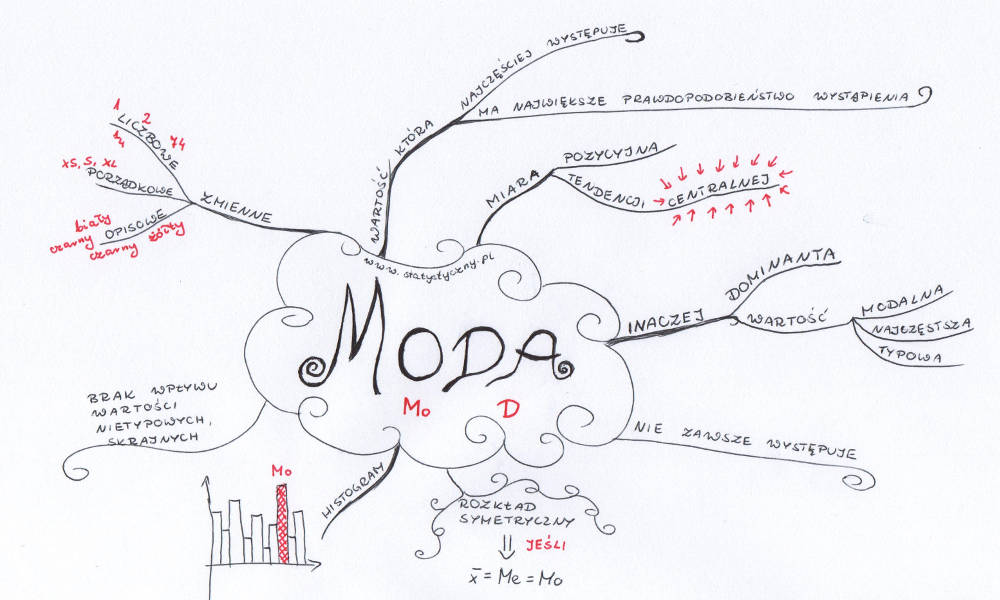 MODA
Mo D
www.statystyczny.pl
ZMIENNE
LICZBOWE
1 2
74
PORZĄDKOWE
XS, S, XL
OPISOWE
biały
czarny żółty
czarny
WARTOŚĆ KTÓRA
NAJCZĘŚCIEJ WYSTĘPUJE
MA NAJWIĘKSZE PRAWDOPODOBIEŃSTWO WYSTĄPIENIA
MIARA
POZYCYJNA
TENDENCJI CENTRALNEJ
INACZEJ
DOMINANTA
WARTOŚĆ
MODALNA
NAJCZĘSTSZA
TYPOWA
NIE ZAWSZE WYSTĘPUJE
ROZKŁAD
SYMETRYCZNY
⇓ JEŚLI
x̄ = Me = Mo
HISTOGRAM
Mo
BRAK WPŁYWU
WARTOŚCI
NIETYPOWYCH,
SKRAJNYCH